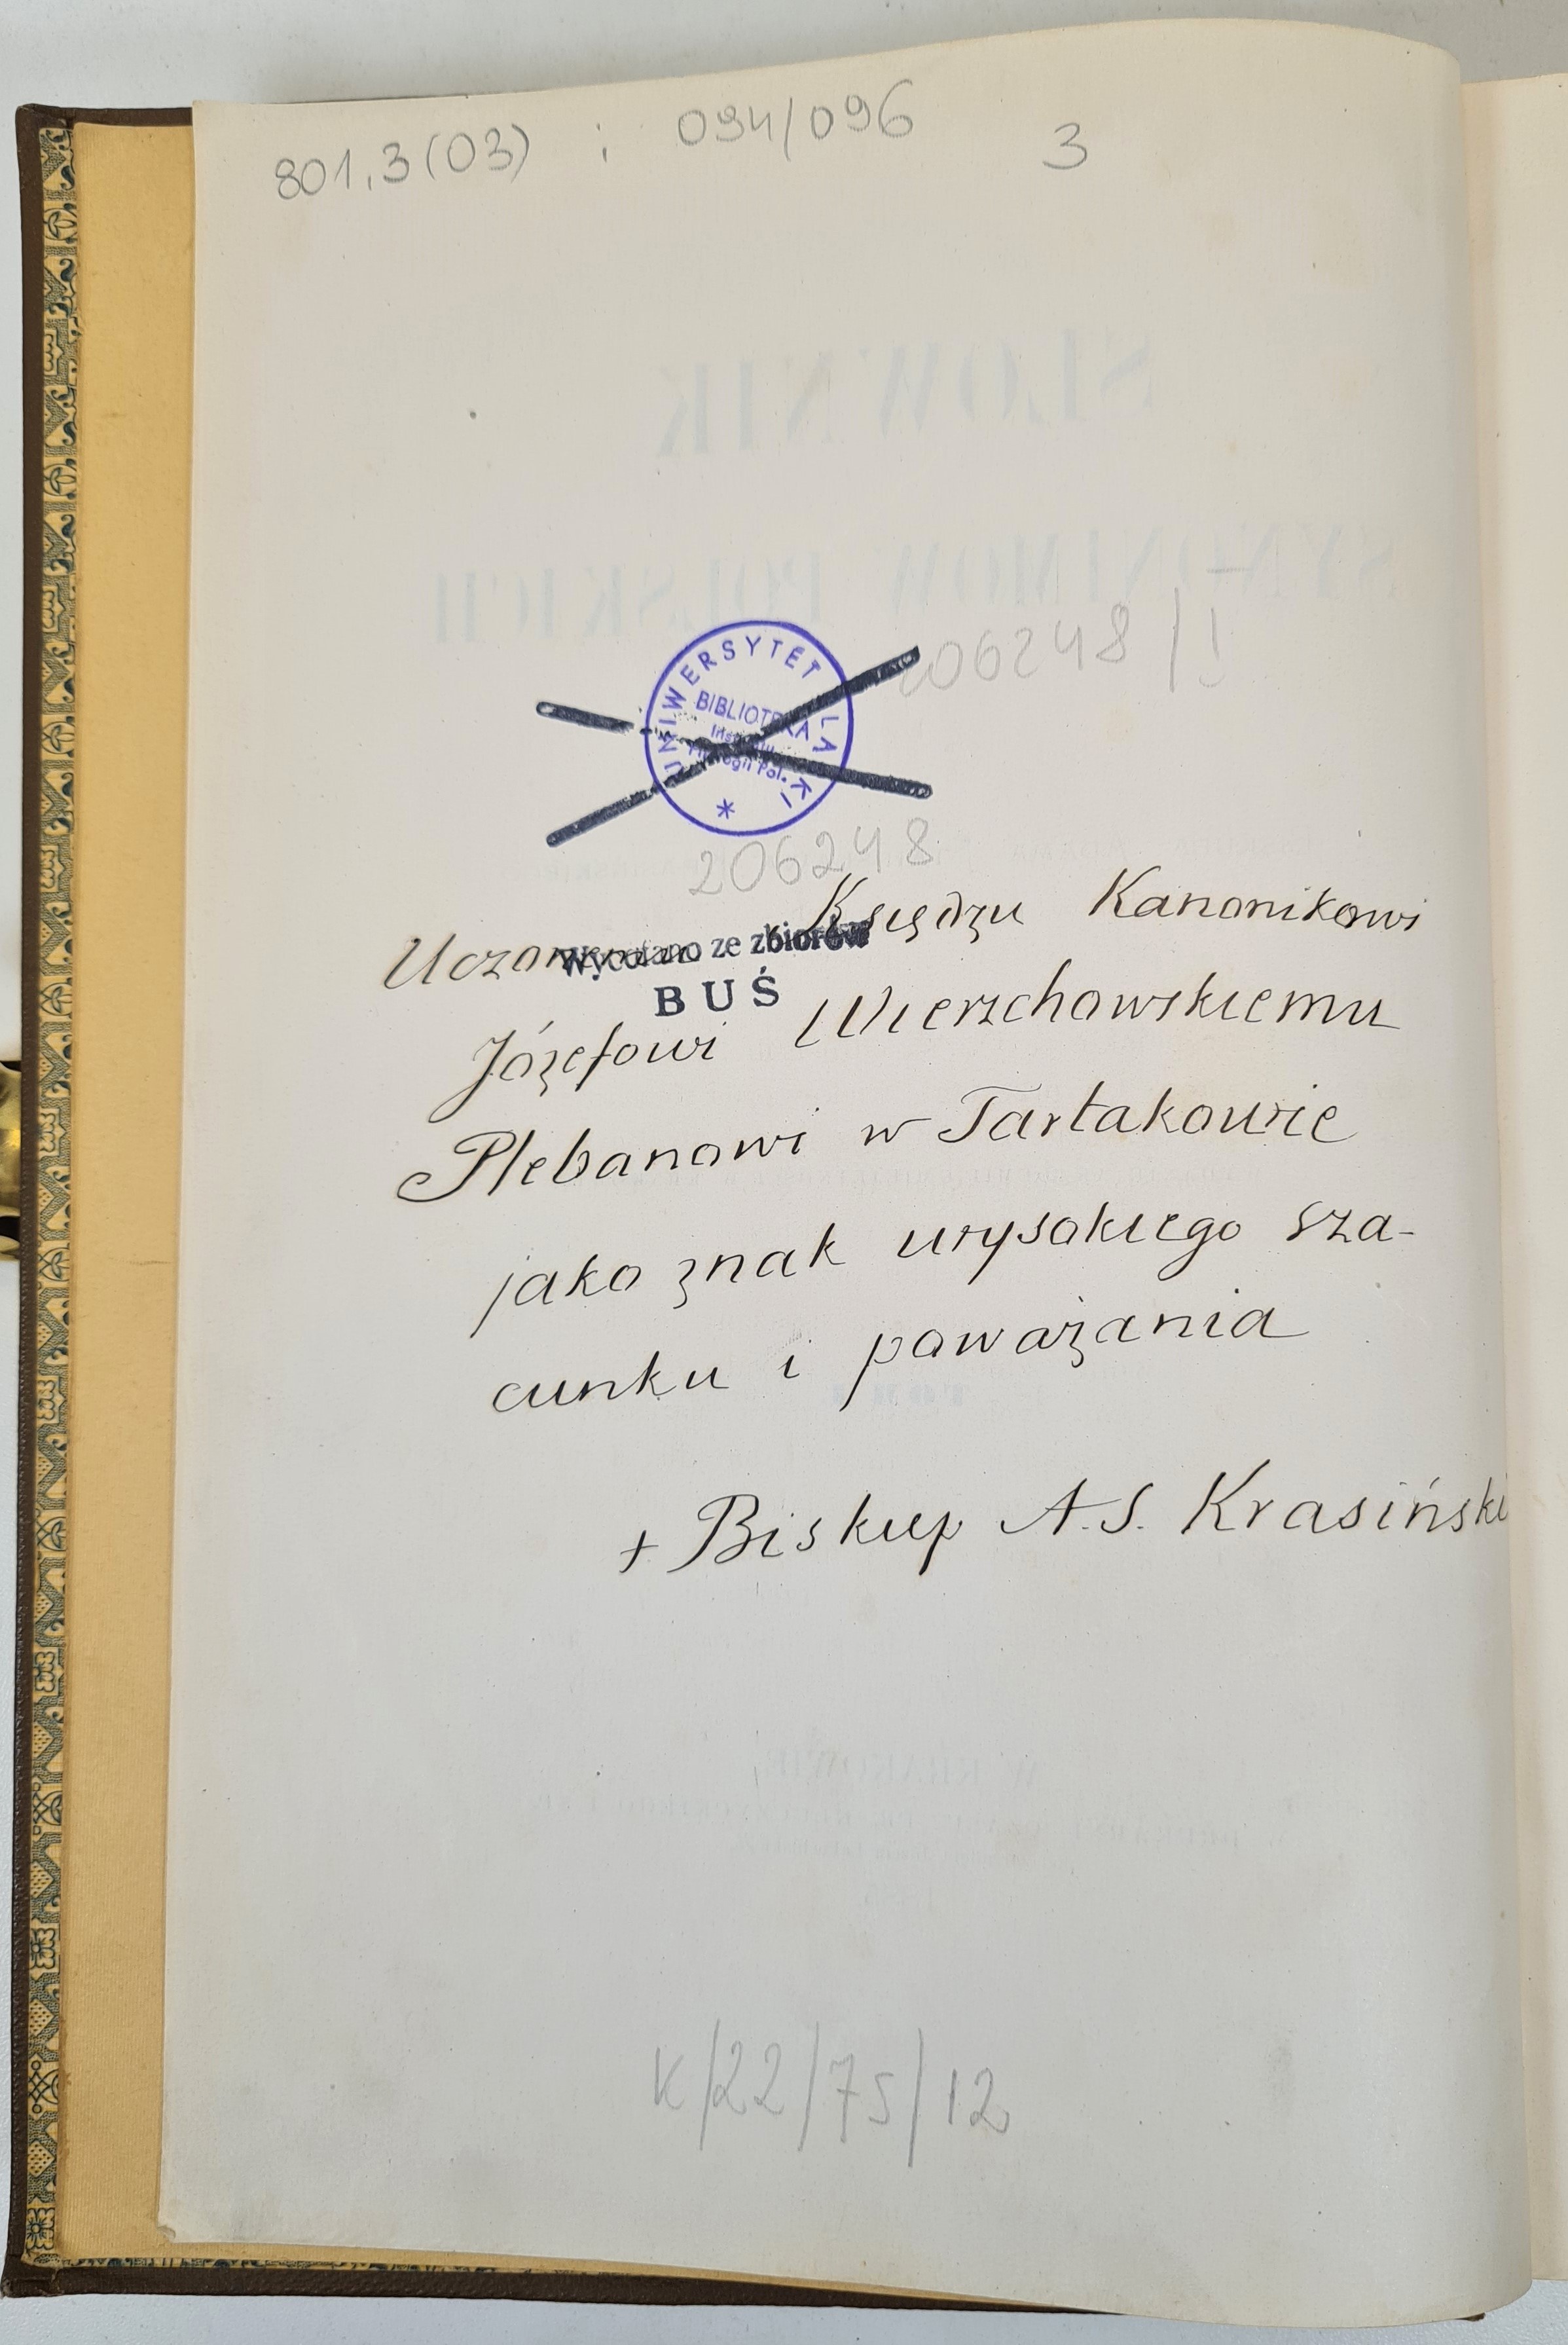 801.3(03) : 094/096 3
206248/I
UNIWERSYTET ŚLĄSKI
BIBLIOTEKA
Instytutu
Filologii Pol.
*
206248
Uczonemu Księdzu Kanonikowi
Wycofano ze zbiorów
BUŚ
Józefowi Wierzchowskiemu
Plebanowi w Tartakowie
jako znak wysokiego sza-
cunku i poważania
+ Biskup A.S. Krasiński
K/22/75/12